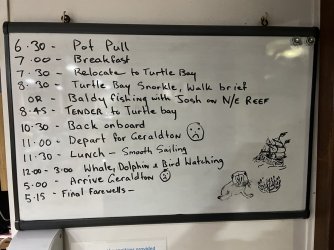 6.30 - Pot Pull
7.00 - Breakfast
7.30 - Relocate to Turtle Bay
8.30 - Turtle Bay Snorkle, Walk brief
OR - Baldy fishing with Josh on N/E REEF
8.45 - TENDER to Turtle bay
10.30 - Back onboard
11.00 - Depart for Geraldton
11.30 - Lunch - Smooth Sailing
12.00 - 3.00 Whale, Dolphin & Bird Watching
5.00 - Arrive Geraldton
5.15 - Final farewells -